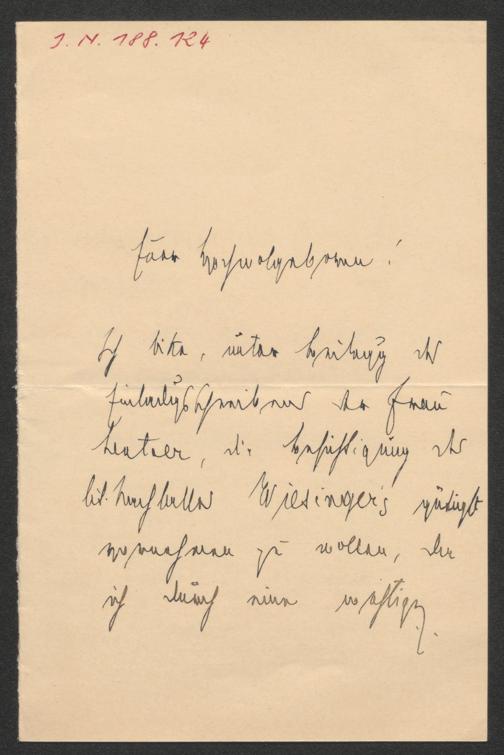 J. N. 188.124
Euer Hochwolgeboren!
Ich bitte, unter Beilegung des
Einladungsschreibens der Frau
die Besichtigung des
lit. Nachlasses Wiesinger's gütigst
vornehmen zu wollen, da
ich durch eine wichtige